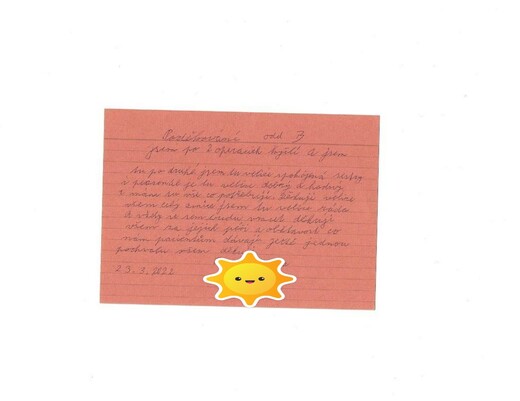 Poděkování odd 7
jsem po 2 operacích kyčlí a jsem
tu po druhé jsem tu velice spokojená sestry
a personál je tu velice dobrý a hodný
i mám tu vše co potřebuji děkuji velice
všem celý smíře jsem tu velice ráda
a vždy se sem budu vracet děkuji
všem za jejich péči a obětavost co
nám pacientům dávají ještě jednou
pochvalu všem
23.3.2022